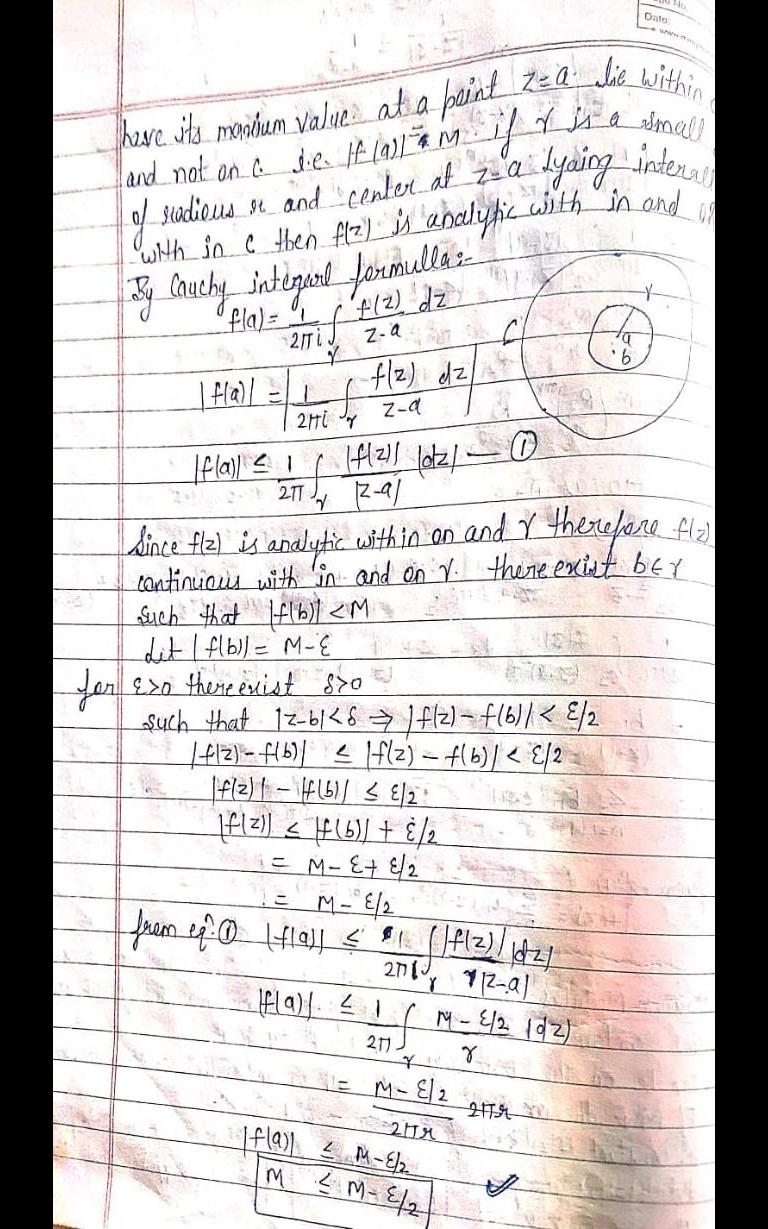 Date:
have its maximum value. at a point z=a. lie within
and not on C. i.e. |f(a)| = M. if γ is a small
of radious r and center at z=a lyaing interal
with in C then f(z) is analytic with in and
By Cauchy integeral formulla:-
f(a) = 1/2πi ∫γ f(z)/z-a dz
|f(a)| = |1/2πi ∫γ f(z)/z-a dz|
|f(a)| ≤ 1/2π ∫γ |f(z)|/|z-a| |dz| — ①
C γ a b
Since f(z) is analytic within on and γ therefore f(z)
continuous with in and on γ. there exist b∈γ
Such that |f(b)| < M
Let |f(b)| = M-ε
for ε>0 there exist δ>0
such that |z-b|<δ ⇒ |f(z) - f(b)| < ε/2
|f(z) - f(b)| ≤ |f(z) - f(b)| < ε/2
|f(z)| - |f(b)| ≤ ε/2
|f(z)| ≤ |f(b)| + ε/2
= M - ε + ε/2
= M - ε/2
from eqⁿ ① |f(a)| ≤ 1/2π ∫γ |f(z)|/|z-a| |dz|
|f(a)| ≤ 1/2π ∫γ M - ε/2 / r |dz|
= M - ε/2 / 2πr 2πr
|f(a)| ≤ M - ε/2
M ≤ M - ε/2